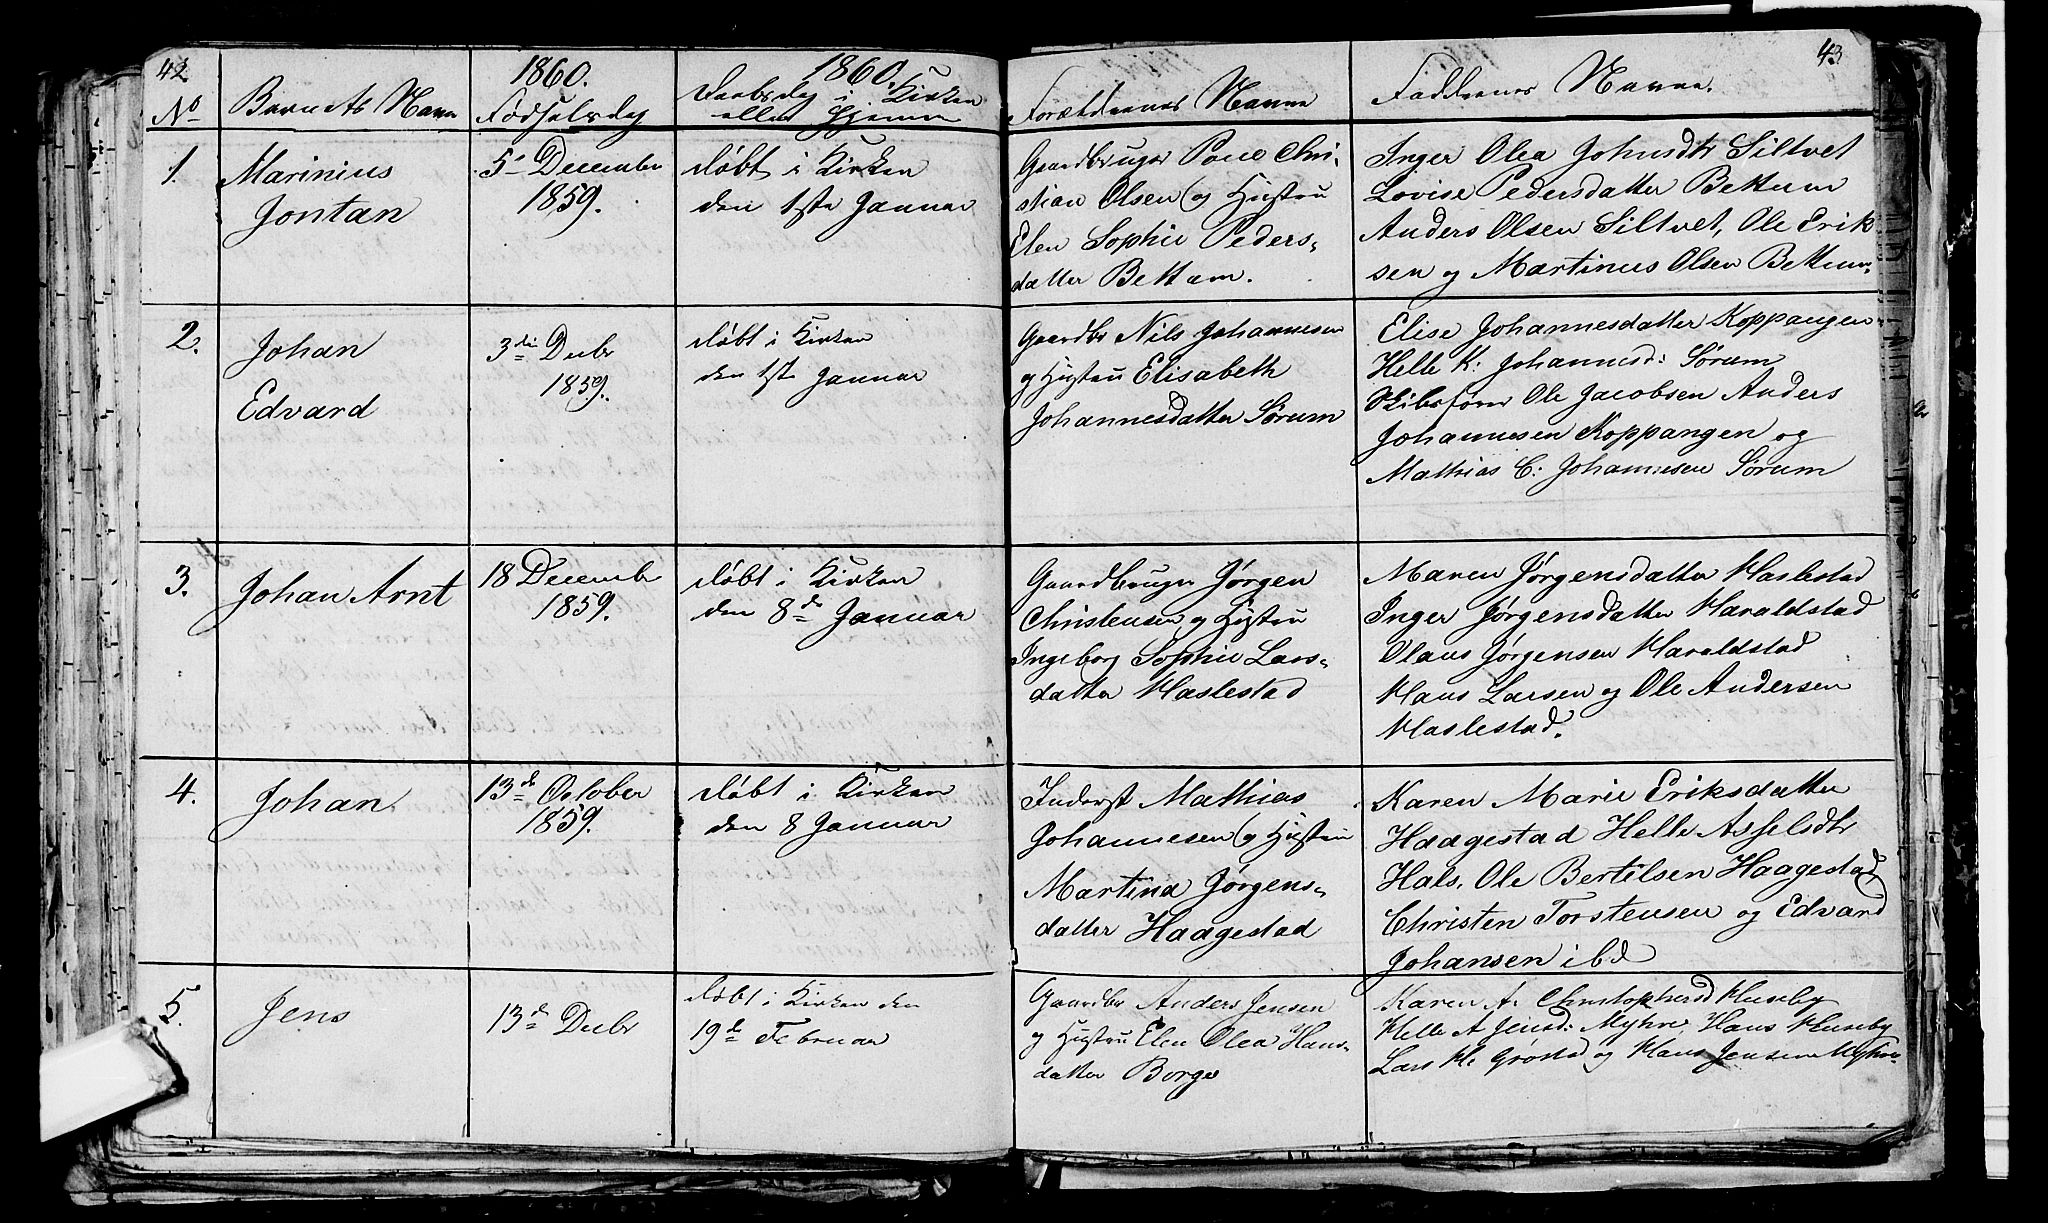 42
1860.
1860.
43
No
Barnets Navn
Fødselsdag
Daabsdag i Kirken
eller Hjemme
Forældrenes Navne
Faddernes Navne.
1.
Marinius
Jontan
5 December
1859.
døbt i Kirken
den 1ste Januar
Gaardbruger Chri-
stian Olsen og Hustru
Elen Sophie Peders-
datter Bettum.
Inger Olea Johnsdtr Siltvet
Lovise Pedersdatter Bettum
Anders Olsen Siltvet, Ole Erik
sen og Martinus Olsen Bettum.
2.
Johan
Edvard
3die Decbr
1859.
døbt i Kirken
den 1ste Januar
Gaardbr Nils Johannesen
og Hustru Elisabeth
Johannesdatter Sørum
Elise Johannesdatter Koppangen
Helle K: Johannesd: Sørum
Skibsfører Ole Jacobsen Anders
Johannesen Koppangen og
Mathias C: Johannesen Sørum
3.
Johan Arnt
18 Decembr
1859.
døbt i Kirken
den 8de Januar
Gaardbruger Jørgen
Christensen og Hustru
Ingeborg Sophie Lars-
datter Haslestad
Maren Jørgensdatter Haslestad
Inger Jørgensdatter Haraldstad
Olaus Jørgensen Haraldstad
Hans Larsen og Ole Andersen
Haslestad.
4.
Johan
13de October
1859.
døbt i Kirken
den 8 Januar
Inderst Mathias
Johannesen og Hustru
Martina Jørgens-
datter Haagestad
Karen Marie Eriksdatter
Haagestad Helle Asselsdtr
Hals, Ole Bertilsen Haagestad
Christen Torstensen og Edvard
Johansen ibd
5.
Jens
13de Decbr
døbt i Kirken den
19de Februar
Gaardbr Anders Jensen
og Hustru Elen Olea Hans-
datter Borge
Karen A: Christophersd Huseby
Helle A Jensd: Myhre, Hans Huseby
Lars H: Grøstad og Hans Jensen Myhre